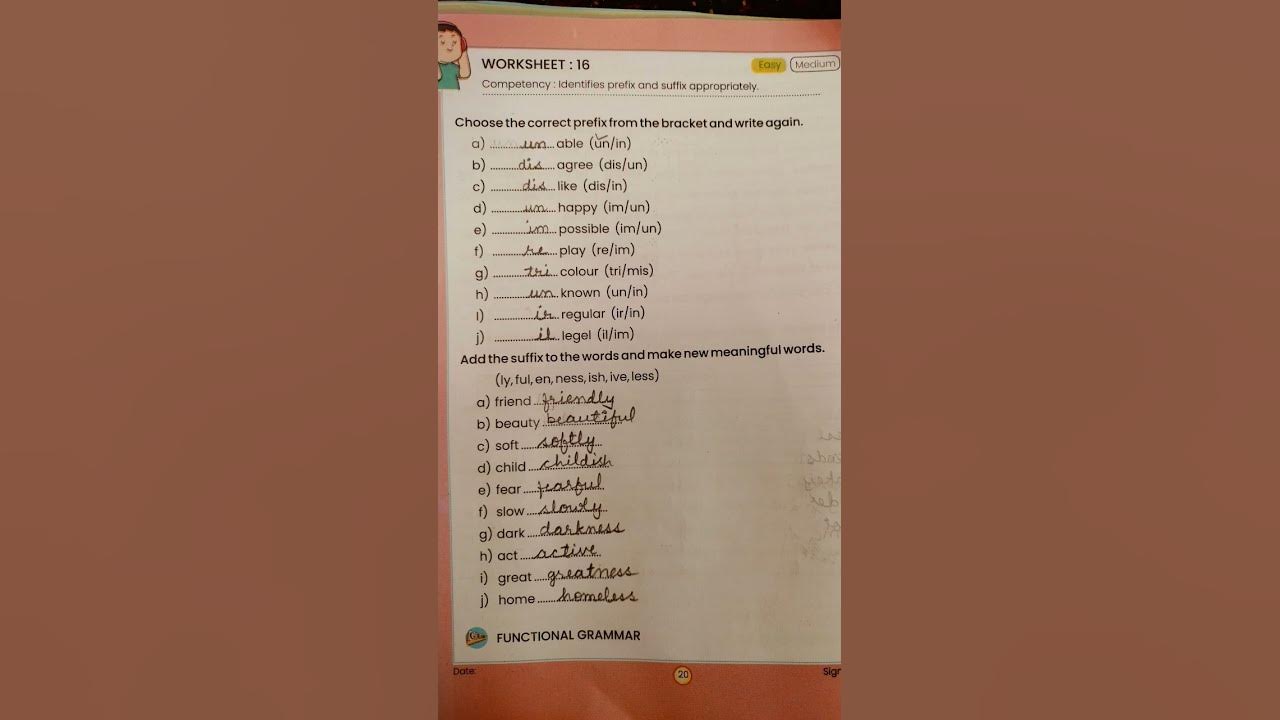 WORKSHEET : 16
Easy Medium
Competency : Identifies prefix and suffix appropriately.
Choose the correct prefix from the bracket and write again.
a) ..........un... able (un/in)
b) ..........dis.... agree (dis/un)
c) ..........dis... like (dis/in)
d) ..........un... happy (im/un)
e) ..........im... possible (im/un)
f) ..........re.... play (re/im)
g) ..........tri... colour (tri/mis)
h) ..........un... known (un/in)
I) ..........ir... regular (ir/in)
j) ..........il... legel (il/im)
Add the suffix to the words and make new meaningful words.
(ly, ful, en, ness, ish, ive, less)
a) friend ...friendly
b) beauty beautiful
c) soft ....softly
d) child ....childish
e) fear ....fearful
f) slow ....slowly
g) dark ....darkness
h) act ....active
i) great ....greatness
j) home .....homeless
FUNCTIONAL GRAMMAR
Date:
20
Sign